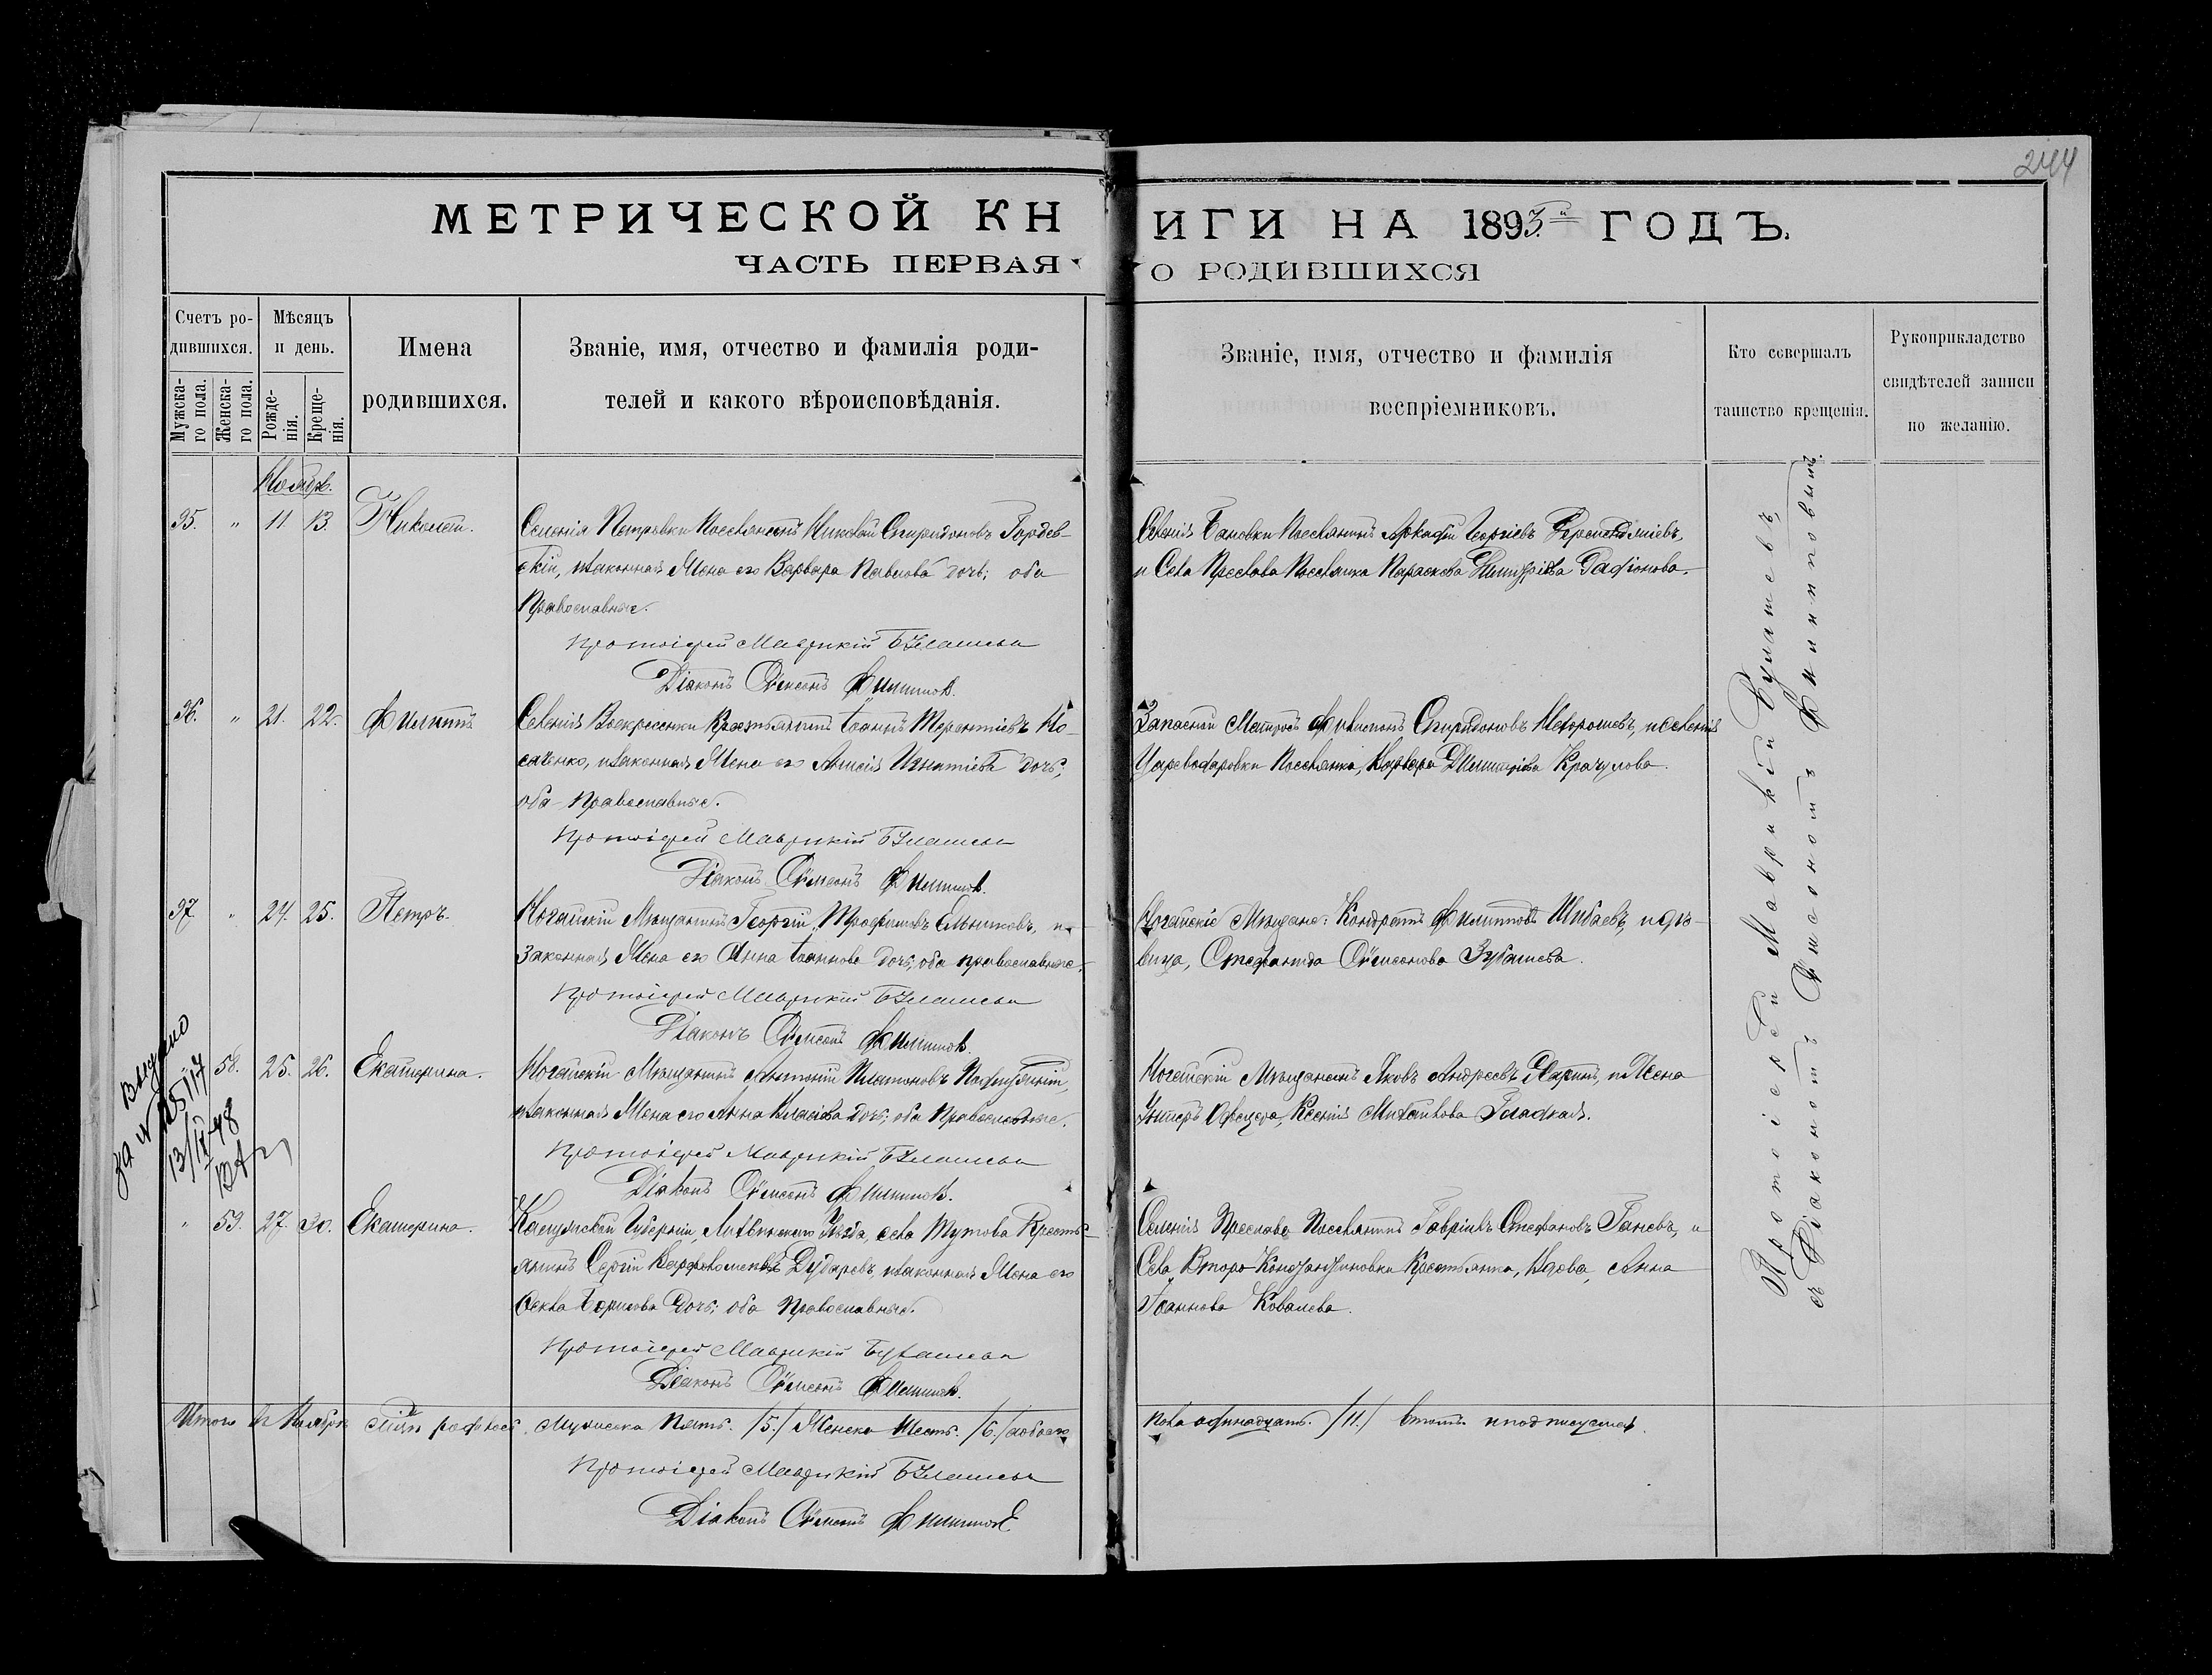 244
МЕТРИЧЕСКОЙ КНИГИ НА 1893й ГОДЪ.
ЧАСТЬ ПЕРВАЯ О РОДИВШИХСЯ
Счетъ родившихся.
Мужскаго пола.
Женскаго пола.
Мѣсяцъ и день.
Рожденія.
Крещенія.
Имена родившихся.
Званіе, имя, отчество и фамилія родителей и какого вѣроисповѣданія.
Званіе, имя, отчество и фамилія воспріемниковъ.
Кто совершалъ таинство крещенія.
Рукоприкладство свидѣтелей записи по желанію.
Ноябрь.
95. " 11 13. Николай.
Селенія Петровки Поселянинъ Николай Спиридоновъ
и законная Жена его Варвара Павлова дочь; оба
Православные.
Протоіерей Маврикій Булашевъ
Діаконъ Сѵмеонъ Филиповъ.
Селенія Бановки Поселянинъ Аркадій Георгіевъ
и Села Преслава Поселянка Параскева Димитріева
96. " 21. 22. Филиппъ
Селенія Воскресенки Крестьянинъ Іоаннъ Терентіевъ Но-
саченко, и законная Жена его Анисія Игнатіева дочь;
оба Православные.
Протоіерей Маврикій Булашевъ
Діаконъ Сѵмеонъ Филиповъ.
Запасной Матросъ Филимонъ Спиридоновъ и Селенія
Цареводаровки Поселянка, Варвара Димитріева Крачунова.
97. " 24. 25. Петръ.
Ногайскій Мѣщанинъ Георгій Трофимовъ и
Законная Жена его Анна Іоаннова дочь; оба православные.
Протоіерей Маврикій Булашевъ
Діаконъ Сѵмеонъ Филиповъ.
Ногайскіе Мѣщане: Кондратъ Филипповъ Шибаевъ, и дѣ-
вица, Стефанида Сѵмеонова Зубашева.
Выдано
за № 25117
13/IX 48
58. 25. 26. Екатерина.
Ногайскій Мѣщанинъ Антоній Платоновъ
и законная Жена его Анна Власіева дочь; оба Православные.
Протоіерей Маврикій Булашевъ
Діаконъ Сѵмеонъ Филиповъ.
Ногайскій Мѣщанинъ Яковъ Андреевъ и Жена
Унтеръ Офицера, Ксенія Михайлова Гладкая.
" 59. 27. 30. Екатерина.
Калужской Губерніи, Уѣзда, села Крестьянинъ
Сергій Варфоломеевъ Дударевъ, и законная Жена его
Ѳекла дочь; оба Православные.
Протоіерей Маврикій Булашевъ
Діаконъ Сѵмеонъ Филиповъ.
Селенія Преслава Поселянинъ Гавріилъ Стефановъ Ганевъ, и
Села Второ-Константиновки Крестьянка, Вдова, Анна
Іоаннова Ковалева.
Протоіерей Маврикій Булашевъ,
съ Діакономъ Сѵмеономъ Филипповымъ.
Итого въ Ноябрѣ мѣсяцѣ родилось Мужеска Пять. /5./ Женска Шесть. /6./ обоего
пола одинадцать. /11./ въ томъ и подписуемся.
Протоіерей Маврикій Булашевъ
Діаконъ Сѵмеонъ Филиповъ